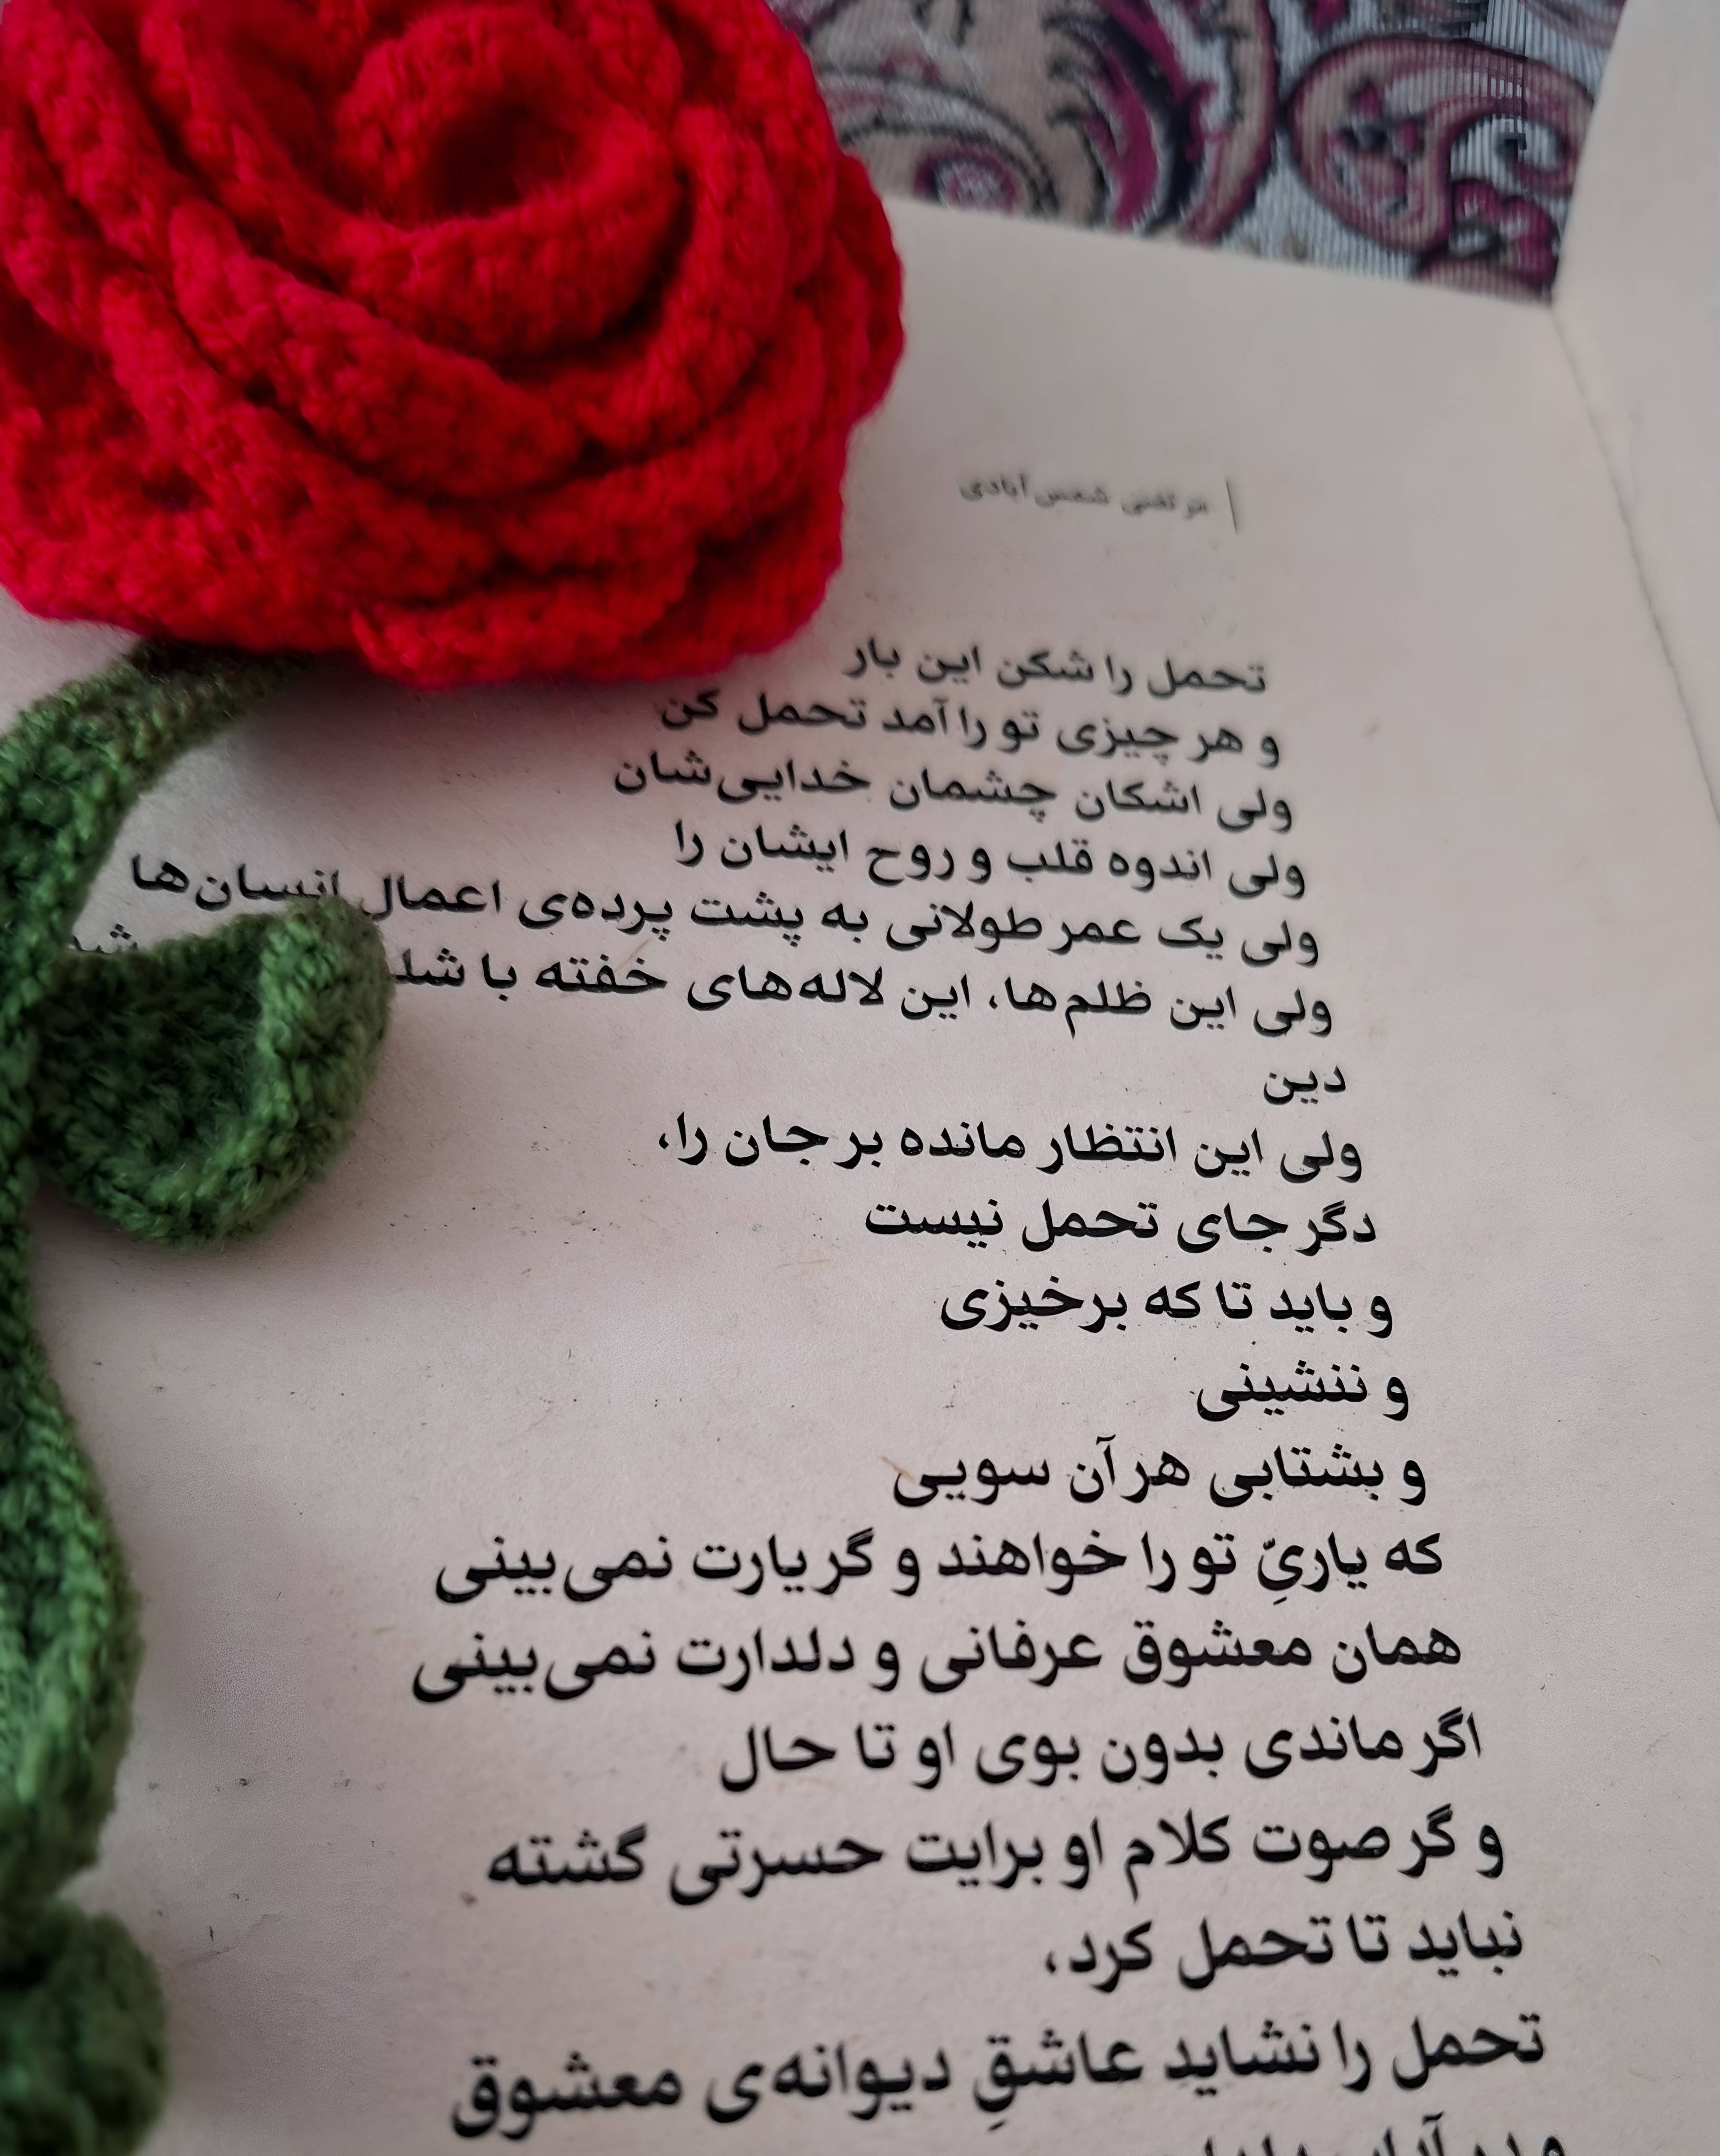 مرتضی شمس‌آبادی
تحمل را شکن این بار
و هر چیزی تو را آمد تحمل کن
ولی اشکان چشمان خدایی‌شان
ولی اندوه قلب و روح ایشان را
ولی یک عمر طولانی به پشت پرده‌ی اعمال انسان‌ها
ولی این ظلم‌ها، این لاله‌های خفته با
دین
ولی این انتظار مانده بر جان را،
دگر جای تحمل نیست
و باید تا که برخیزی
و ننشینی
و بشتابی هر آن سویی
که یاریِّ تو را خواهند و گر یارت نمی‌بینی
همان معشوق عرفانی و دلدارت نمی‌بینی
اگر ماندی بدون بوی او تا حال
و گر صوت کلام او برایت حسرتی گشته
نباید تا تحمل کرد،
تحمل را نشاید عاشقِ دیوانه‌ی معشوق